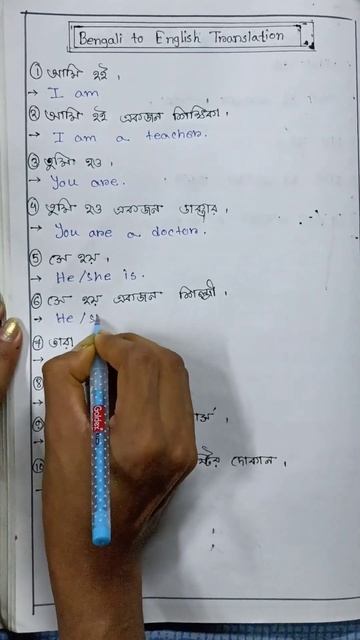 Bengali to English Translation
① আমি হই ।
→ I am
② আমি হই একজন শিক্ষিকা ।
→ I am a teacher.
③ তুমি হও ।
→ You are.
④ তুমি হও একজন ডাক্তার ।
→ You are a doctor.
⑤ সে হয় ।
→ He/she is.
⑥ সে হয় একজন শিল্পী ।
→ He /s
⑦ তারা
→
⑧
→
⑨
→
⑩ দোকান ।
→
Golden